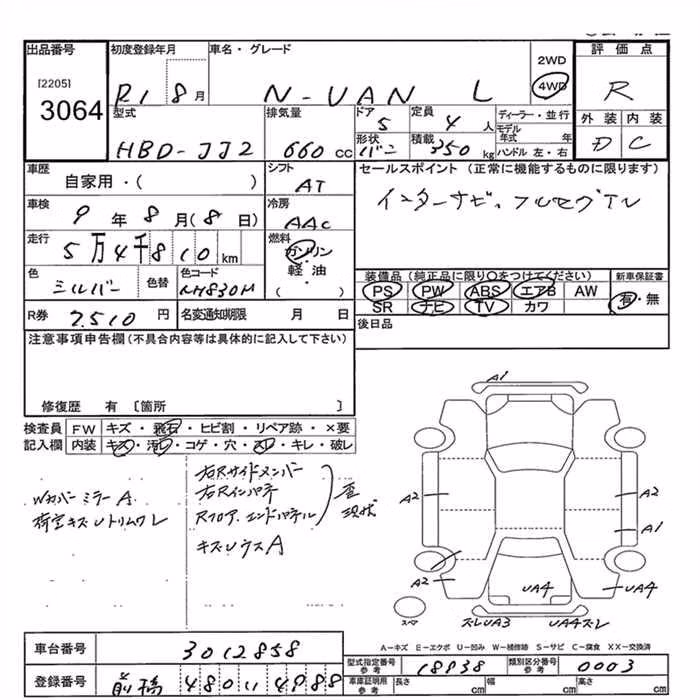 出品番号 初度登録年月 車名・グレード 2WD 評価点
[2205] 3064 R1 8月 N-VAN L 4WD R
型式 排気量 ドア 5 定員 4人 ディーラー・並行 外装 内装
HBD-JJ2 660cc 形状 バン 積載 350kg モデル年式 年 ハンドル 左・右 D C
車歴 自家用・( ) シフト AT セールスポイント (正常に機能するものに限ります)
車検 9年8月(8日) 冷房 AAC インターナビ、フルセグTV
走行 5万4千810km 燃料 ガソリン・軽油・( )
色 シルバー 色替 色コード NH830M 装備品 (純正品に限り○をつけてください) 新車保証書
PS PW ABS エアB AW 有・無
SR ナビ TV カワ
R券 7.510円 名変通知期限 月 日 後日品
注意事項申告欄(不具合内容等は具体的に記入して下さい)
修復歴 有 [箇所 ]
検査員 FW キズ・飛石・ヒビ割・リペア跡・×要
記入欄 内装 キズ・汚レ・コゲ・穴・スレ・キレ・破レ
右Rサイドメンバー
右Rインパネ
Rフロア、エンドパネル
歪
現状
キズUウスA
Wカバー ミラーA
荷室キズUトリムワレ
A1
A2 A2
A1
A2 UA4 UA4
スペア
ズレUA3 UA4ズレ
A-キズ E-エクボ U-凹み W-補修跡 S-サビ C-腐食 XX-交換済
車台番号 3012858
型式指定番号 参考 18938 類別区分番号 参考 0003
登録番号 前橋 480 い 4988
車庫証明用 参考 長さ cm 幅 cm 高さ cm